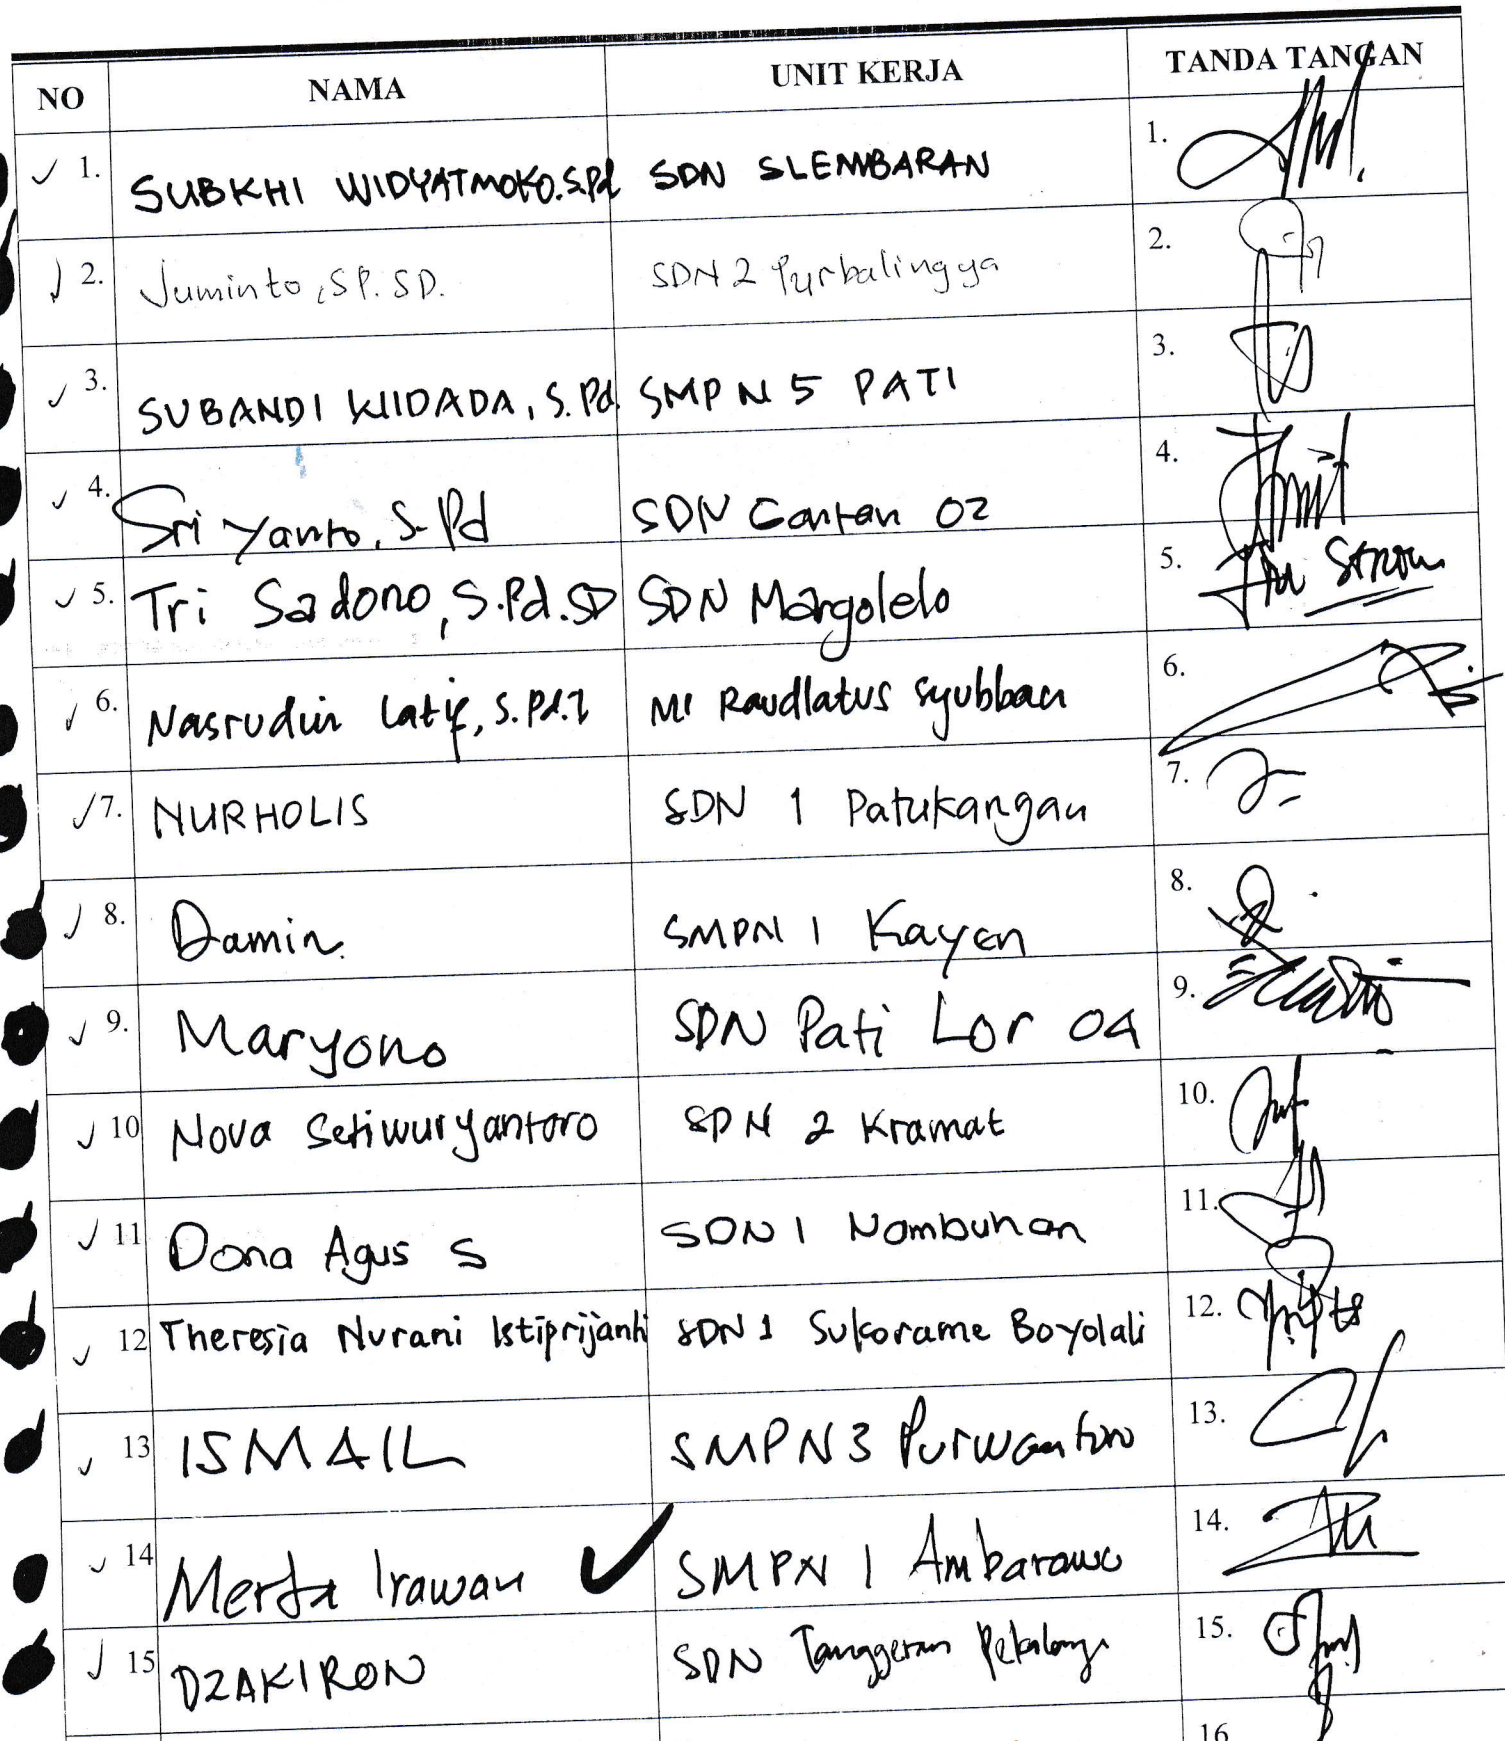 NO NAMA UNIT KERJA TANDA TANGAN
1. SUBKHI WIDYATMOKO.S.Pd SDN SLEMBARAN 1.
2. Juminto, SP. SD. SDN 2 Purbalingga 2.
3. SUBANDI WIDADA, S.Pd. SMPN 5 PATI 3.
4. Sri Yanto, S.Pd SDN 02 4.
5. Tri Sadono, S.Pd.SD SDN Margolelo 5.
6. Nasrudin Latif, S.Pd.I MI Raudlatus Syubban 6.
7. NURHOLIS SDN 1 Patukangan 7.
8. Damin. SMPN 1 Kayen 8.
9. Maryono SDN Pati Lor 04 9.
10 Nova Setiwuryantoro SDN 2 Kramat 10.
11 Dona Agus S SDN 1 Nambuhan 11.
12 Theresia Nurani Istiprijanti SDN 1 Sukorame Boyolali 12.
13 ISMAIL SMPN 3 Purwantoro 13.
14 Merta Irawan SMPN 1 Ambarawa 14.
15 DZAKIRON SDN Tanggeran 15.
16